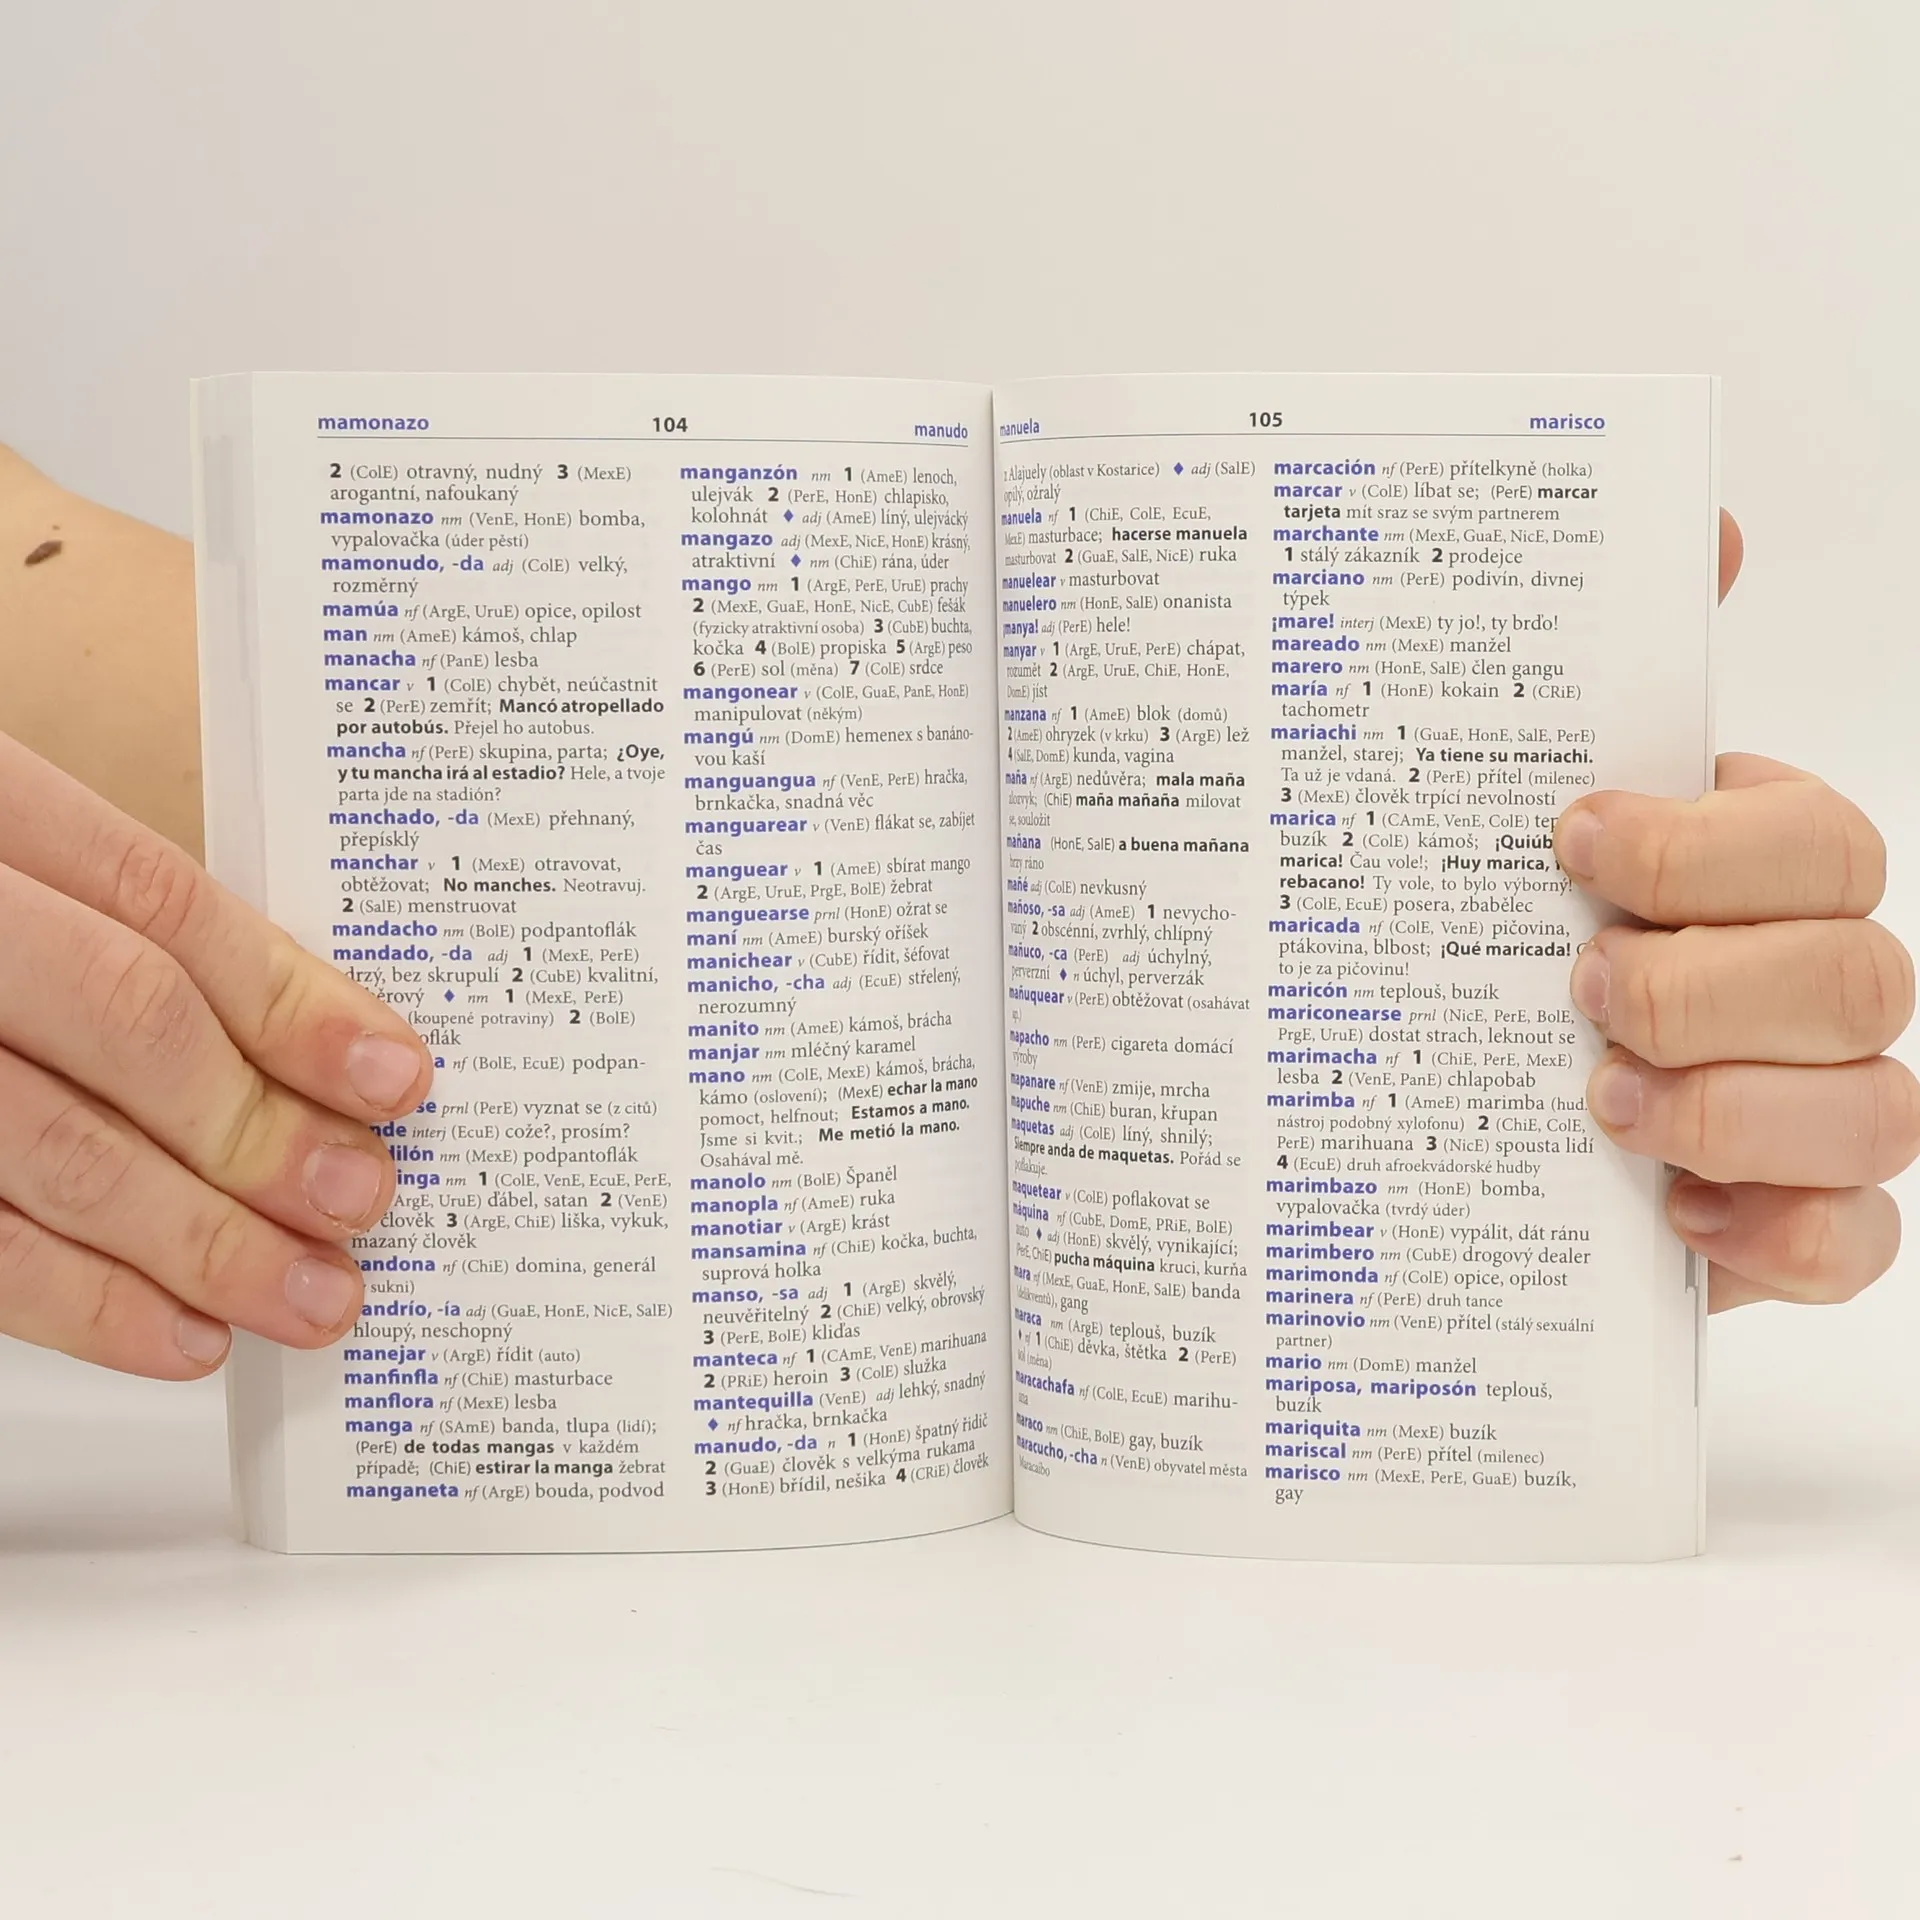 mamonazo 104 manudo
2 (ColE) otravný, nudný 3 (MexE)
arogantní, nafoukaný
mamonazo nm (VenE, HonE) bomba,
vypalovačka (úder pěstí)
mamonudo, -da adj (ColE) velký,
rozměrný
mamúa nf (ArgE, UruE) opice, opilost
man nm (AmeE) kámoš, chlap
manacha nf (PanE) lesba
mancar v 1 (ColE) chybět, neúčastnit
se 2 (PerE) zemřít; Mancó atropellado
por autobús. Přejel ho autobus.
mancha nf (PerE) skupina, parta; ¿Oye,
y tu mancha irá al estadio? Hele, a tvoje
parta jde na stadión?
manchado, -da (MexE) přehnaný,
přepísklý
manchar v 1 (MexE) otravovat,
obtěžovat; No manches. Neotravuj.
2 (SalE) menstruovat
mandacho nm (BolE) podpantoflák
mandado, -da adj 1 (MexE, PerE)
drzý, bez skrupulí 2 (CubE) kvalitní,
ěrový ♦ nm 1 (MexE, PerE)
(koupené potraviny) 2 (BolE)
oflák
a nf (BolE, EcuE) podpan-
se prnl (PerE) vyznat se (z citů)
nde interj (EcuE) cože?, prosím?
ilón nm (MexE) podpantoflák
inga nm 1 (ColE, VenE, EcuE, PerE,
ArgE, UruE) ďábel, satan 2 (VenE)
člověk 3 (ArgE, ChiE) liška, vykuk,
mazaný člověk
andona nf (ChiE) domina, generál
sukni)
andrío, -ía adj (GuaE, HonE, NicE, SalE)
hloupý, neschopný
manejar v (ArgE) řídit (auto)
manfinfla nf (ChiE) masturbace
manflora nf (MexE) lesba
manga nf (SAmE) banda, tlupa (lidí);
(PerE) de todas mangas v každém
případě; (ChiE) estirar la manga žebrat
manganeta nf (ArgE) bouda, podvod
manganzón nm 1 (AmeE) lenoch,
ulejvák 2 (PerE, HonE) chlapisko,
kolohnát ♦ adj (AmeE) líný, ulejvácký
mangazo adj (MexE, NicE, HonE) krásný,
atraktivní ♦ nm (ChiE) rána, úder
mango nm 1 (ArgE, PerE, UruE) prachy
2 (MexE, GuaE, HonE, NicE, CubE) fešák
(fyzicky atraktivní osoba) 3 (CubE) buchta,
kočka 4 (BolE) propiska 5 (ArgE) peso
6 (PerE) sol (měna) 7 (ColE) srdce
mangonear v (ColE, GuaE, PanE, HonE)
manipulovat (někým)
mangú nm (DomE) hemenex s banáno-
vou kaší
manguangua nf (VenE, PerE) hračka,
brnkačka, snadná věc
manguarear v (VenE) flákat se, zabíjet
čas
manguear v 1 (AmeE) sbírat mango
2 (ArgE, UruE, PrgE, BolE) žebrat
manguearse prnl (HonE) ožrat se
maní nm (AmeE) burský oříšek
manichear v (CubE) řídit, šéfovat
manicho, -cha adj (EcuE) střelený,
nerozumný
manito nm (AmeE) kámoš, brácha
manjar nm mléčný karamel
mano nm (ColE, MexE) kámoš, brácha,
kámo (oslovení); (MexE) echar la mano
pomoct, helfnout; Estamos a mano.
Jsme si kvit.; Me metió la mano.
Osahával mě.
manolo nm (BolE) Španěl
manopla nf (AmeE) ruka
manotiar v (ArgE) krást
mansamina nf (ChiE) kočka, buchta,
suprová holka
manso, -sa adj 1 (ArgE) skvělý,
neuvěřitelný 2 (ChiE) velký, obrovský
3 (PerE, BolE) kliďas
manteca nf 1 (CAmE, VenE) marihuana
2 (PRiE) heroin 3 (ColE) služka
mantequilla (VenE) adj lehký, snadný
♦ nf hračka, brnkačka
manudo, -da n 1 (HonE) špatný řidič
2 (GuaE) člověk s velkýma rukama
3 (HonE) břídil, nešika 4 (CRiE) člověk
manuela 105 marisco
z Alajuely (oblast v Kostarice) ♦ adj (SalE)
opilý, ožralý
manuela nf 1 (ChiE, ColE, EcuE,
MexE) masturbace; hacerse manuela
masturbovat 2 (GuaE, SalE, NicE) ruka
manuelear v masturbovat
manuelero nm (HonE, SalE) onanista
¡manya! adj (PerE) hele!
manyar v 1 (ArgE, UruE, PerE) chápat,
rozumět 2 (ArgE, UruE, ChiE, HonE,
DomE) jíst
manzana nf 1 (AmeE) blok (domů)
2 (AmeE) ohryzek (v krku) 3 (ArgE) lež
4 (SalE, DomE) kunda, vagina
maña nf (ArgE) nedůvěra; mala maña
zlozvyk; (ChiE) maña mañaña milovat
se, souložit
mañana (HonE, SalE) a buena mañana
brzy ráno
mañé adj (ColE) nevkusný
mañoso, -sa adj (AmeE) 1 nevycho-
vaný 2 obscénní, zvrhlý, chlípný
mañuco, -ca (PerE) adj úchylný,
perverzní ♦ n úchyl, perverzák
mañuquear v (PerE) obtěžovat (osahávat
ap.)
mapacho nm (PerE) cigareta domácí
výroby
mapanare nf (VenE) zmije, mrcha
mapuche nm (ChiE) buran, křupan
maquetas adj (ColE) líný, shnilý;
Siempre anda de maquetas. Pořád se
poflakuje.
maquetear v (ColE) poflakovat se
máquina nf (CubE, DomE, PRiE, BolE)
auto ♦ adj (HonE) skvělý, vynikající;
PerE, ChiE) pucha máquina kruci, kurňa
mara nf (MexE, GuaE, HonE, SalE) banda
(delikventů), gang
maraca nm (ArgE) teplouš, buzík
♦ nf 1 (ChiE) děvka, štětka 2 (PerE)
sol (měna)
maracachafa nf (ColE, EcuE) marihu-
ana
maraco nm (ChiE, BolE) gay, buzík
maracucho, -cha n (VenE) obyvatel města
Maracaibo
marcación nf (PerE) přítelkyně (holka)
marcar v (ColE) líbat se; (PerE) marcar
tarjeta mít sraz se svým partnerem
marchante nm (MexE, GuaE, NicE, DomE)
1 stálý zákazník 2 prodejce
marciano nm (PerE) podivín, divnej
týpek
¡mare! interj (MexE) ty jo!, ty brďo!
mareado nm (MexE) manžel
marero nm (HonE, SalE) člen gangu
maría nf 1 (HonE) kokain 2 (CRiE)
tachometr
mariachi nm 1 (GuaE, HonE, SalE, PerE)
manžel, starej; Ya tiene su mariachi.
Ta už je vdaná. 2 (PerE) přítel (milenec)
3 (MexE) člověk trpící nevolností
marica nf 1 (CAmE, VenE, ColE) tep
buzík 2 (ColE) kámoš; ¡Quiúb
marica! Čau vole!; ¡Huy marica,
rebacano! Ty vole, to bylo výborný!
3 (ColE, EcuE) posera, zbabělec
maricada nf (ColE, VenE) pičovina,
ptákovina, blbost; ¡Qué maricada!
to je za pičovinu!
maricón nm teplouš, buzík
mariconearse prnl (NicE, PerE, BolE,
PrgE, UruE) dostat strach, leknout se
marimacha nf 1 (ChiE, PerE, MexE)
lesba 2 (VenE, PanE) chlapobab
marimba nf 1 (AmeE) marimba (hud.
nástroj podobný xylofonu) 2 (ChiE, ColE,
PerE) marihuana 3 (NicE) spousta lidí
4 (EcuE) druh afroekvádorské hudby
marimbazo nm (HonE) bomba,
vypalovačka (tvrdý úder)
marimbear v (HonE) vypálit, dát ránu
marimbero nm (CubE) drogový dealer
marimonda nf (ColE) opice, opilost
marinera nf (PerE) druh tance
marinovio nm (VenE) přítel (stálý sexuální
partner)
mario nm (DomE) manžel
mariposa, mariposón teplouš,
buzík
mariquita nm (MexE) buzík
mariscal nm (PerE) přítel (milenec)
marisco nm (MexE, PerE, GuaE) buzík,
gay